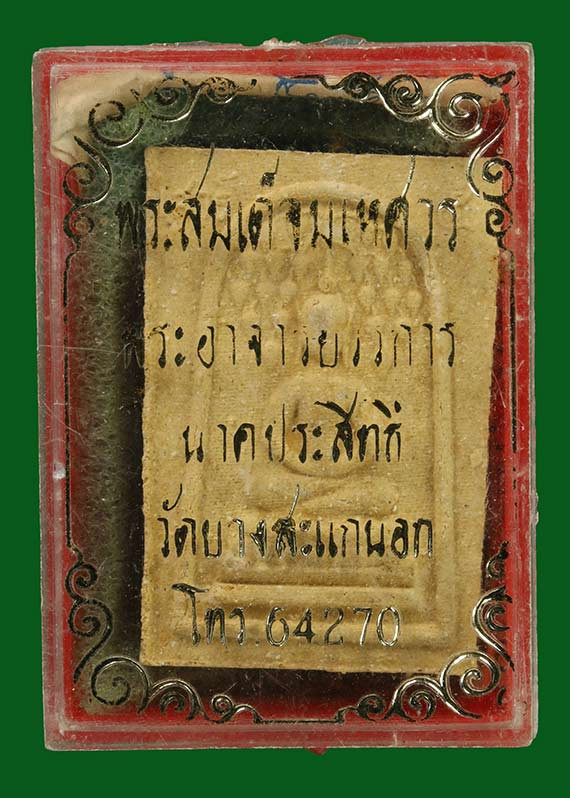 พระสมเด็จมเหศวร
พระอาจารย์วิวการ
นาคประสิทธิ์
วัดบางสะแกนอก
โทร.64270